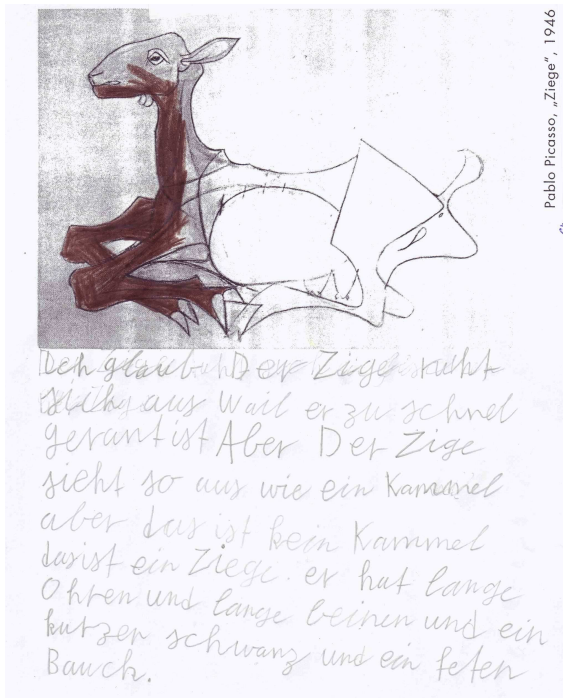 Pablo Picasso, „Ziege“, 1946
Ich glaub Der Zige ruht
sich aus Wail er zu schnel
gerant ist Aber Der Zige
sieht so aus wie ein Kammel
aber das ist kein Kammel
das ist ein Ziege. er hat lange
Ohren und lange beinen und ein
kurzen schwanz und ein feten
Bauch.